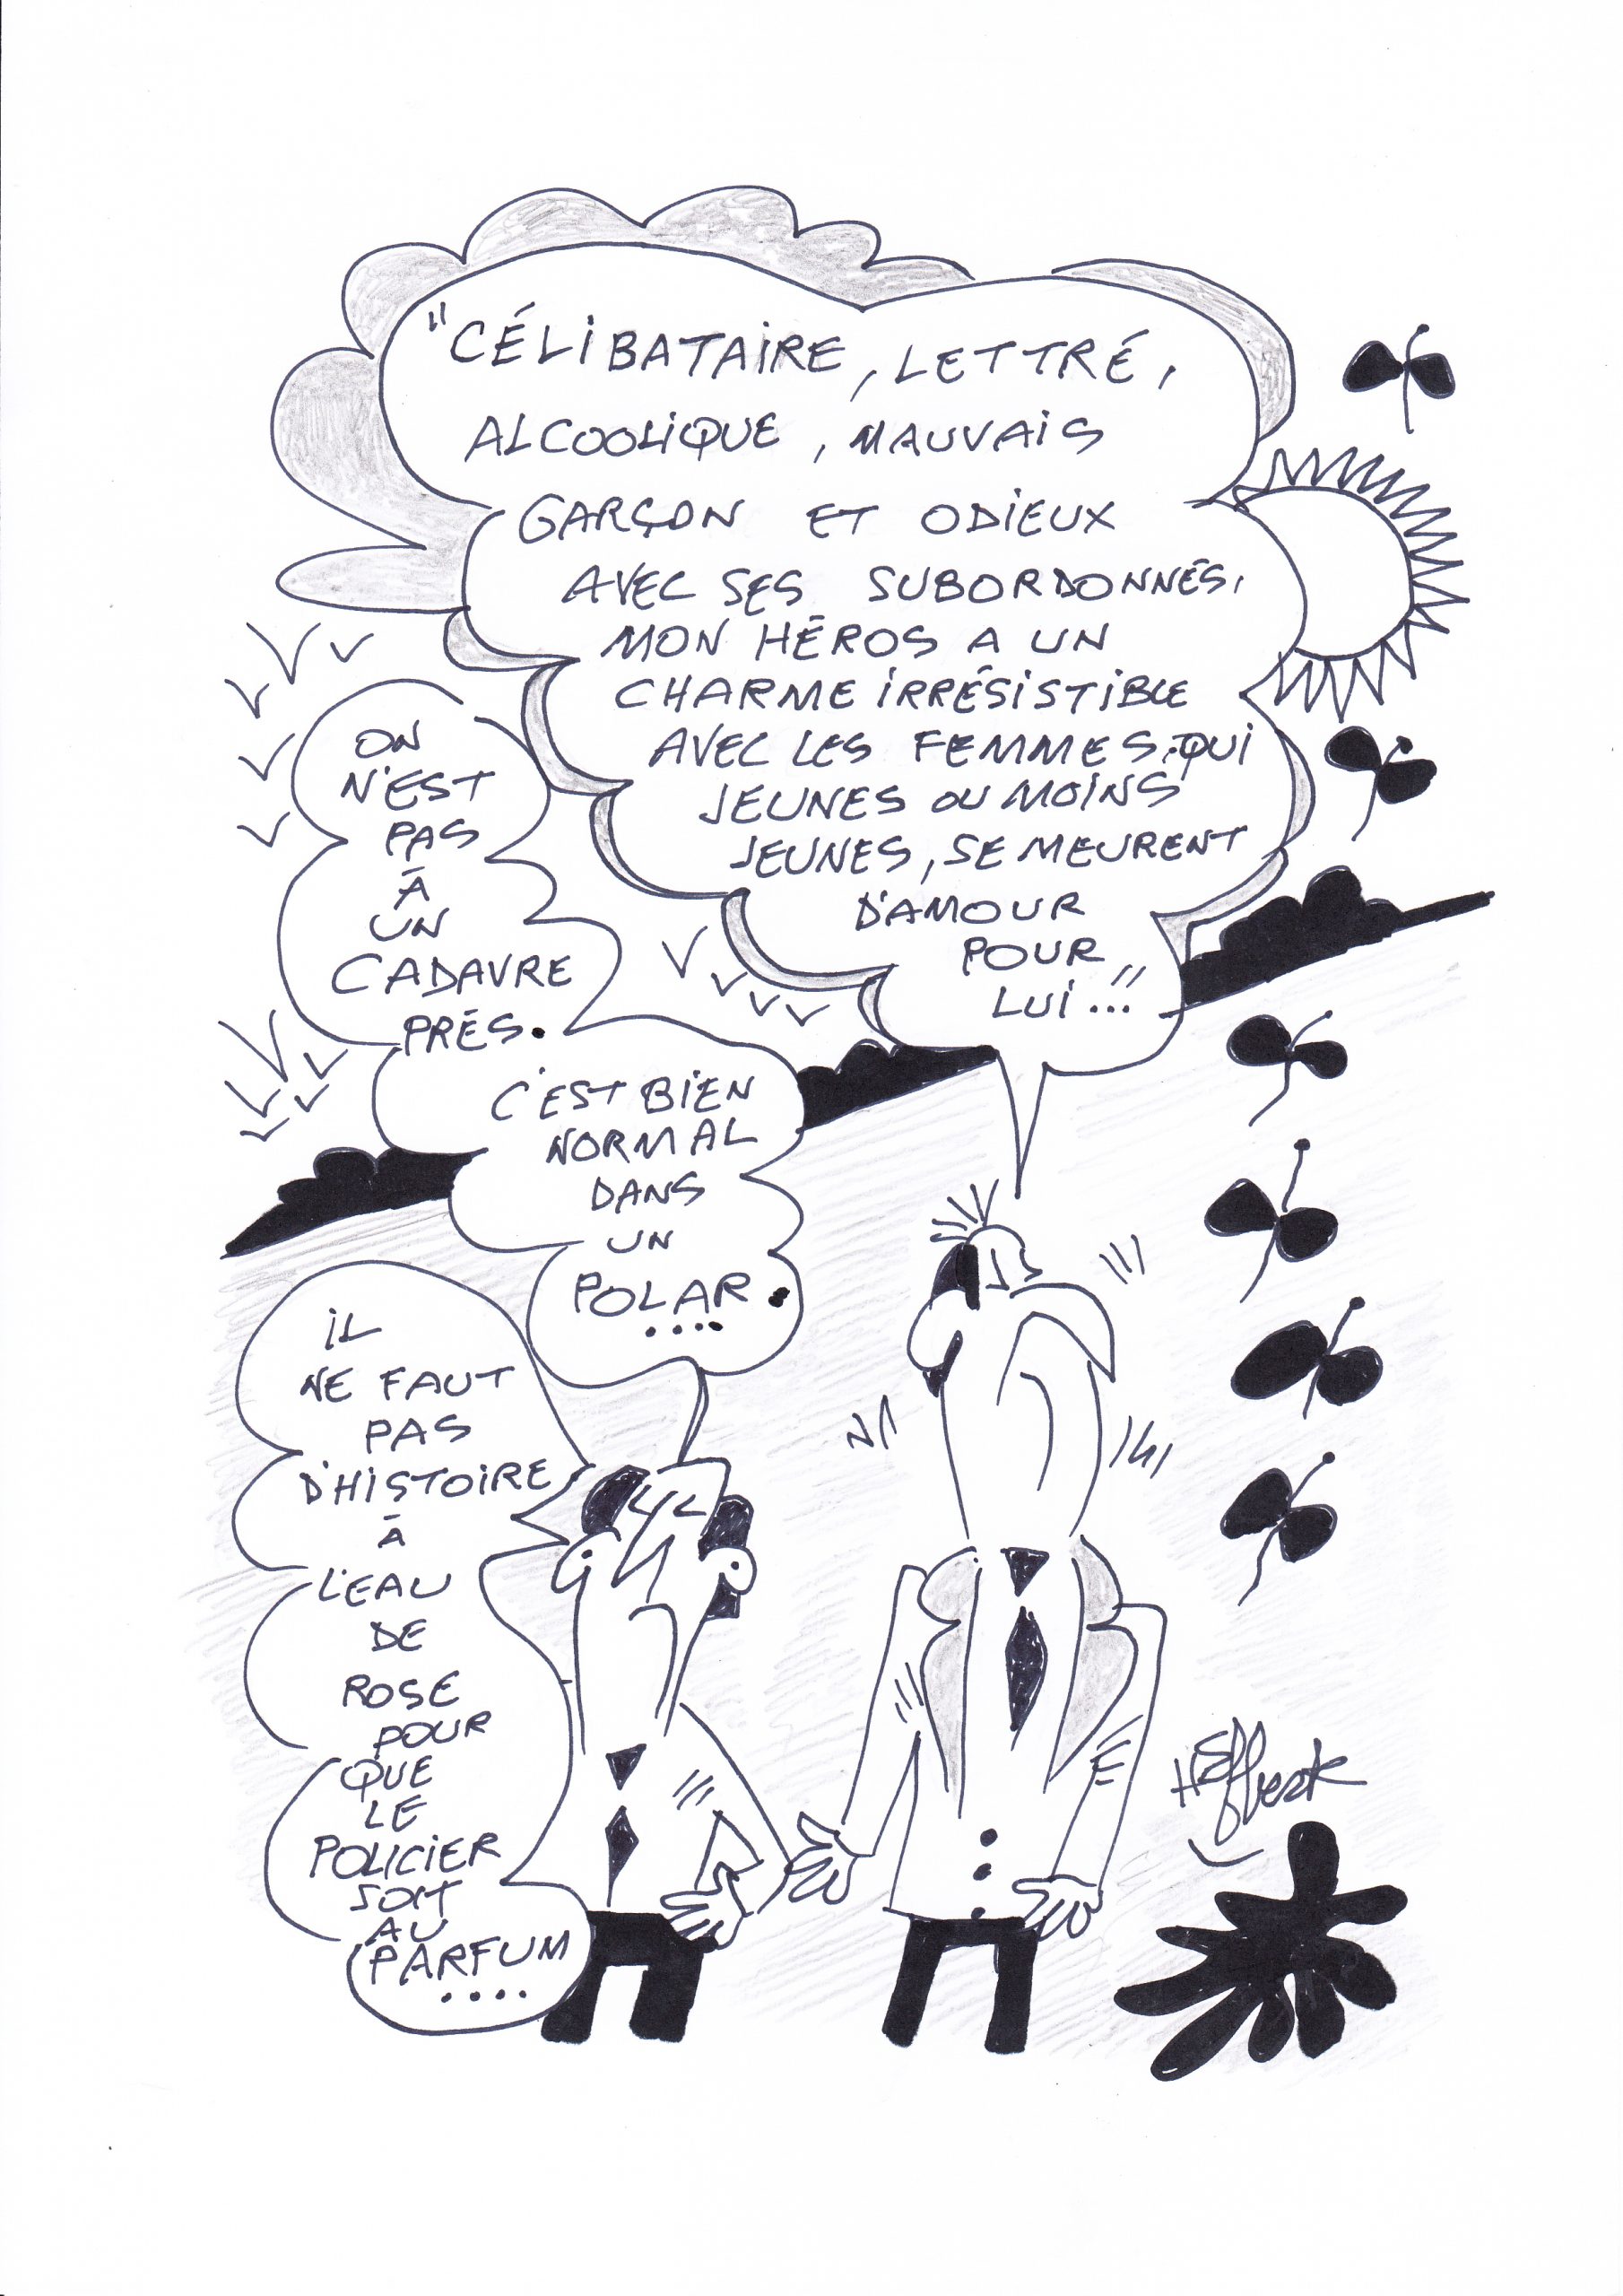 "CÉLIBATAIRE, LETTRÉ,
ALCOOLIQUE, MAUVAIS
GARÇON ET ODIEUX
AVEC SES SUBORDONNÉS,
MON HÉROS A UN
CHARME IRRÉSISTIBLE
AVEC LES FEMMES, QUI
JEUNES OU MOINS
JEUNES, SE MEURENT
D'AMOUR
POUR
LUI..."
ON
N'EST
PAS
À
UN
CADAVRE
PRÉS.
C'EST BIEN
NORMAL
DANS
UN
POLAR.
....
IL
NE FAUT
PAS
D'HISTOIRE
À
L'EAU
DE
ROSE
POUR
QUE
LE
POLICIER
SOIT
AU
PARFUM
....